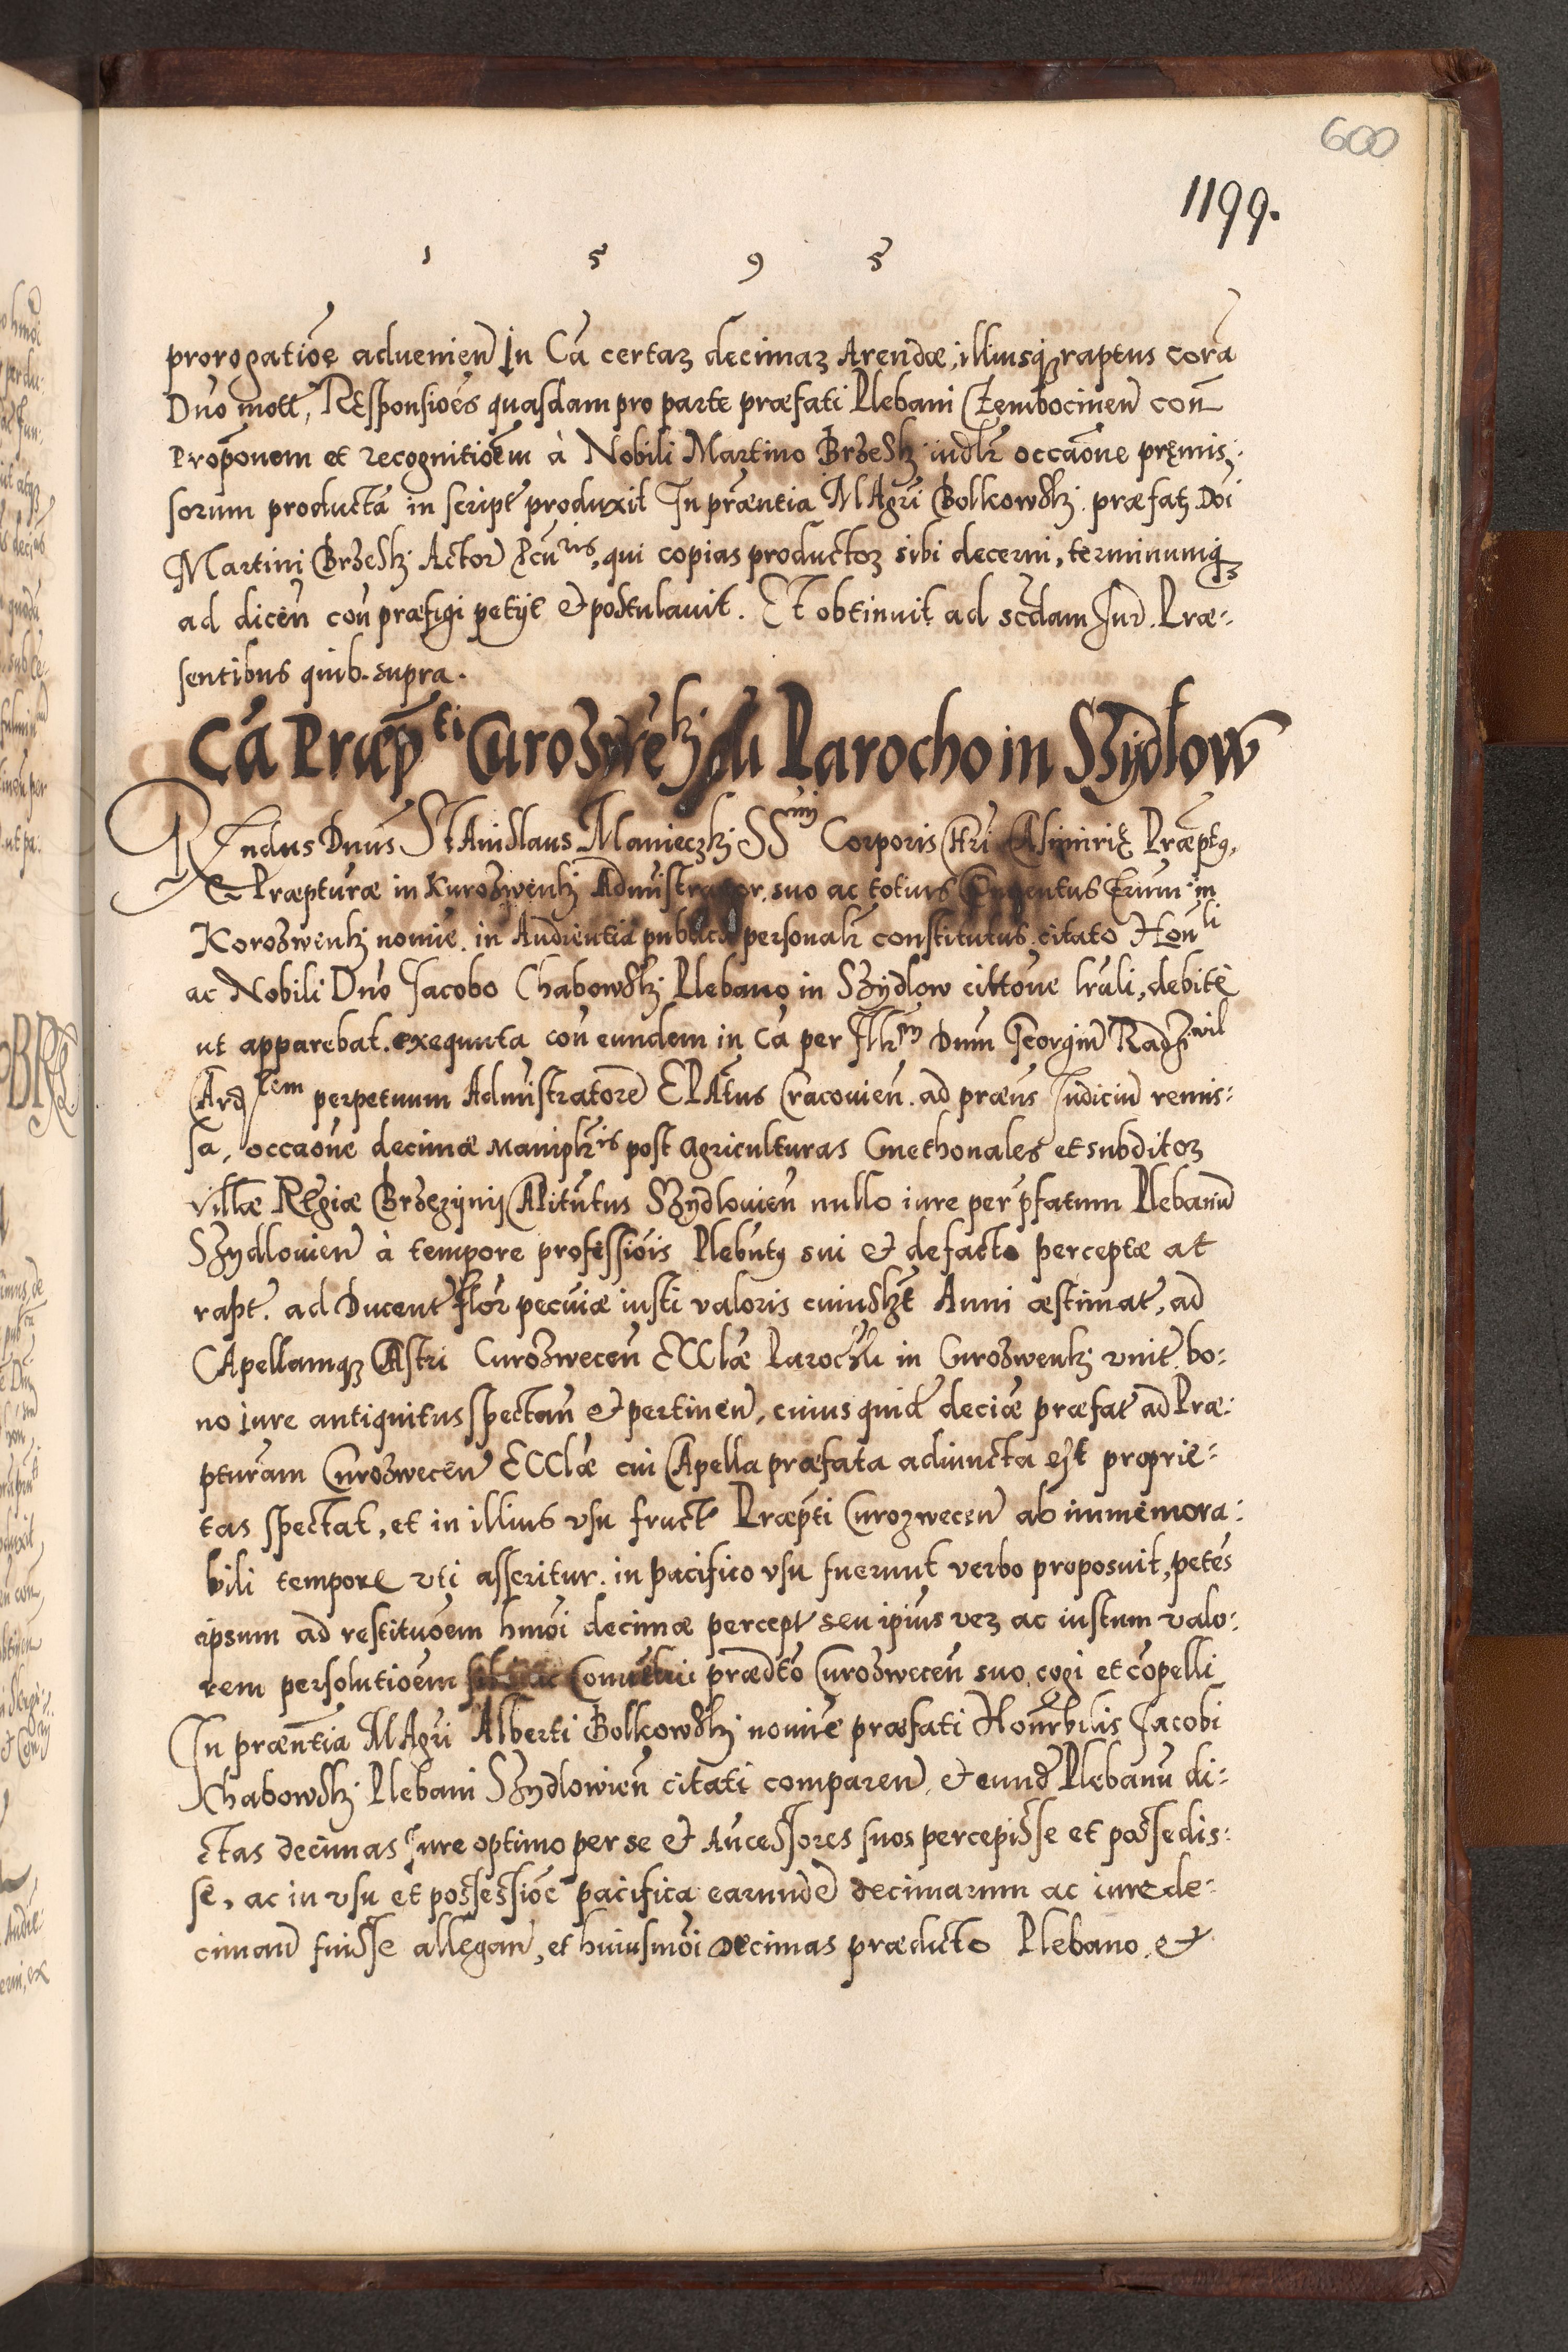 600
1199.
1 5 9 5
prorogatiōe advenieñ In Cā certaȝ decimaȝ Arendæ, illiusqȝ raptus corā
Dn̄o motꝭ, REsponsiōēs quasdam pro parte præfati Plebani Czembocineñ coñ
Propōnem et recognitiōēm à Nobili Martino BrzeSkj iudlr occāōne pręmis:
sorum productā in scriptꝭ produxit In præn̄tia MAgr̄i Bolkowskj præfatj Dn̄i
Martini BrzeSkj Actorꝭ Pcuris, qui copias productoȝ sibi decerni, terminumqȝ
ad diceñ coñ præfigi petijt & postulavit. Et obtinuit ad scdam Jurꝭ. Præ:
sentibus quib. supra.
Cā Præpti Curozwękj cū Parocho in Szydłow
REndus Dnus StAniSlaus Manieczkj SSmj Corporis Chri CAsimirię Præptꝰ,
& Præpturæ in Kurozwenkj Administrator, suo ac totius Conventus Frum in
Korozwenkj nomīe. in Audientia publica personalr constitutus. citato Honli
ac Nobili Dn̄o Jacobo Chabowskj Plebano in Szydlow cittōne lrāli, debitè
ut apparebat. exequuta coñ eundem in Cā per Illrm Dnum Georgiū Radziwil
CArdlem perpetuum Administratorē EPAtus Cracovieñ. ad præn̄s Judiciū remis:
sa, occāōne decimæ Maniplris post agriculturas Cmethonales et subditoȝ
villæ REgiæ Brzezijnij CApitn̄tus Szydlovieñ nullo iure per pfatum Plebanū
Szydlovieñ à tempore professiōis Plebn̄tꝰ sui & defacto perceptæ at
raptꝭ. ad Ducentꝭ flor̄ pecuiæ iusti valoris cuiuslzt Anni æstimatꝭ, ad
CApellamqȝ CAstri Curozweceñ ECClæ Parochli in Curozwenkj unitꝭ. bo:
no iure antiquitus spectañ & pertineñ, cuius quidē deciæ præfatꝭ ad Præ:
pturam Curozweceñ ECClæ cui CApella præfata adiuncta est proprie:
tas spectat, et in illius usu fructꝭ Præpti Curozweceñ ab immemora:
bili tempore uti asseritur. in pacifico usu fuerunt verbo proposuit, petēs
ipsum ad restituōēm hmōi decimæ perceptꝭ seu ipius veȝ ac iustum valo:
rem persolutiōēm sibi ac Conventui prædto Curozweceñ suo, cogi et cōpelli
In præn̄tia MAgr̄i Alberti Bolkowskj nomīe præfati Honrbilis Jacobi
Chabowskj Plebani Szydlowieñ citati compareñ. & eundē Plebanū di:
ctas decimas iure optimo per se & Ancessores suos percepisse et possedis:
se, ac in usu et possessiōe pacifica earundē decimarum ac iure de:
cimañ fuisse allegañ, et huiusmōi decimas prædicto Plebano. &